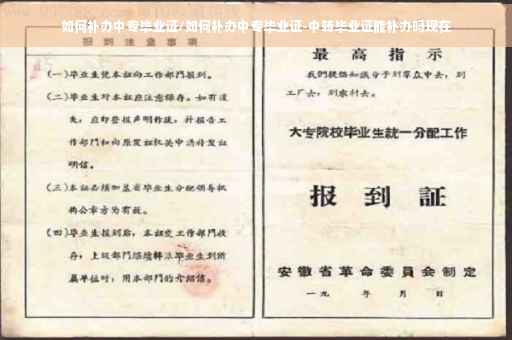 如何补办中专毕业证/如何补办中专毕业证-中转毕业证能补办吗现在
报到注意事项
(一)毕业生凭本证向工作部门报到。
(二)毕业生对本证应注意保存。如有遗
失,应即登报声明作废,并报告工
作部门和向原发证机关申请补发证
明信。
(三)本证必须加盖省毕业生分配领导机
构公章方为有效。
(四)毕业生报到后,本证交工作部门收
存,上级部门
毕业生到所
属单位时,用本部门的介绍信。
最高指示
我们提倡知识分子到群众中去,到
工厂去,到农村去。
大专院校毕业生统一分配工作
报到证
安徽省革命委員会制定
一九 年 月 日